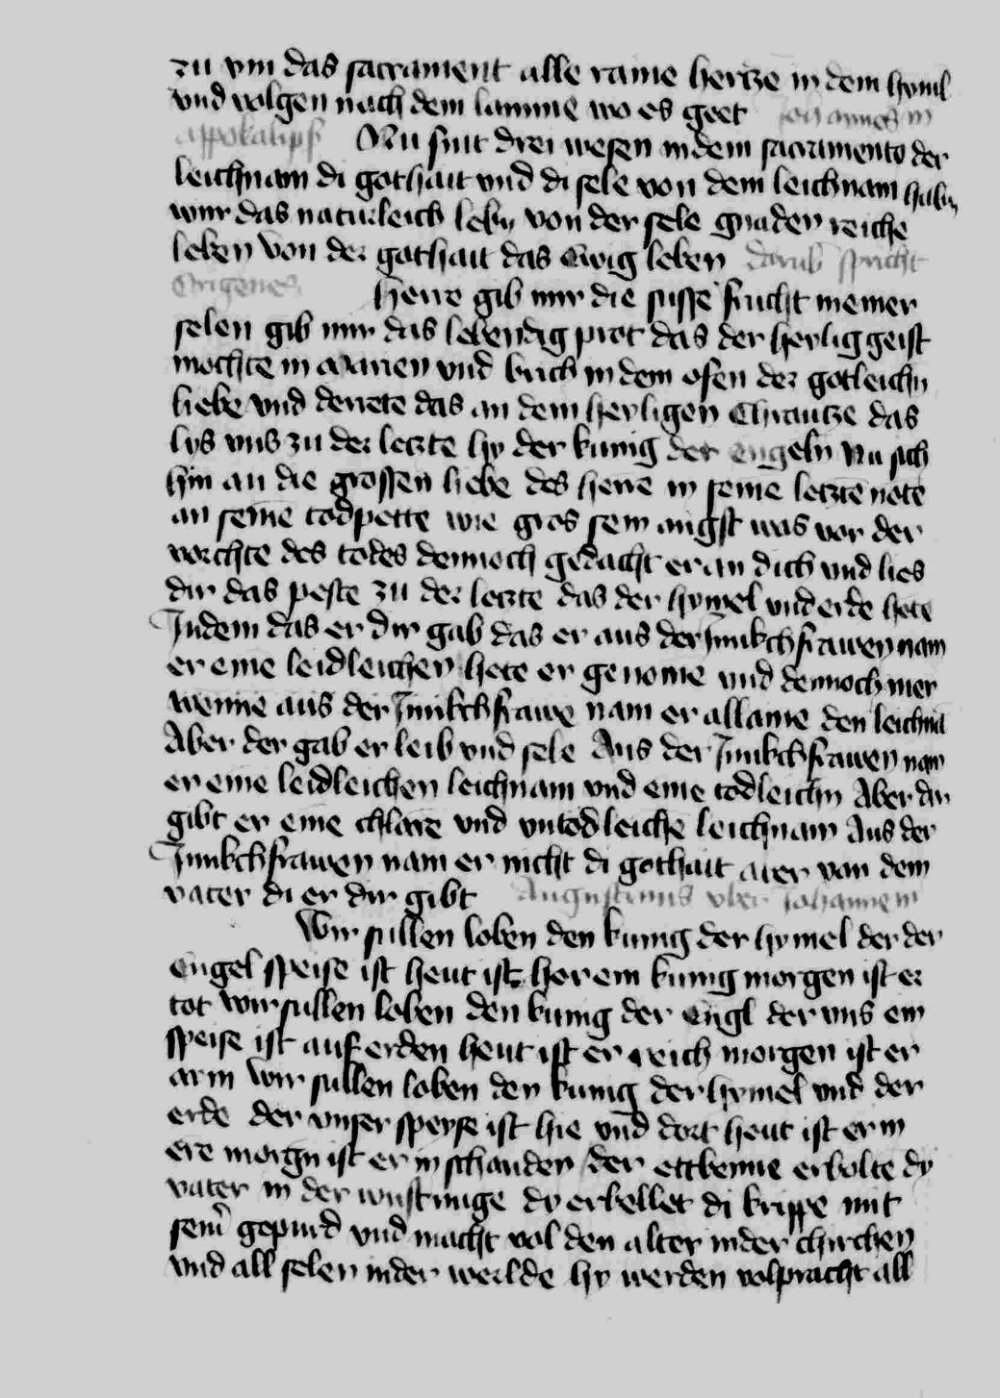 zu vm das sacrament alle raine hertze in dem hyml
vnd volgen nach dem lamme wo es geet Johannes in
appokalips Nu sint drei wesen in dem sacramento der
leichnam di gothait vnd di sele von dem leichnam habn
wir das naturleich lebn von der sele gnaden reiche
leben von der gothait das ewig leben darub spricht
Origenes Herre gib mir die susse frucht meiner
selen gib mir das lebendig prot das der heylig geist
mochte in Marien vnd buch in dem ofen der gotleichn
liebe vnd derrete das an dem heyligen Chrautze das
lys vns zu der letzte hy der kunig der engeln Nu sich
hin an die grossen liebe des herre in seine letzten note
an seine todpette wie gros sein angst was vor der
vorchte des todes dennoch gedacht er an dich vnd lies
dir das peste zu der letzte das der hymel vnd erde hete
Indem das er dir gab das er aus der Junkchfrawen nam
er eine leidleichen hete er genome vnd dennoch mer
wenne aus der Junkchfrawe nam er allaine den leichna
Aber der gab er leib vnd sele Aus der Junkchfrawen nam
er eine leidleichen leichnam vnd eine todleichn Aber dir
gibt er eine chlare vnd vntodleiche leichnam Aus der
Junkchfrawen nam er nicht di gothait aver von dem
vater di er dir gibt Augustinus vber Johannem
Wir sullen loben den kunig der hymel der der
engel speise ist heut ist her ein kunig morgen ist er
tot wir sullen loben den kunig der engl der vns ein
speise ist auf erden heut ist er reich morgen ist er
arm wir sullen loben den kunig der hymel vnd der
erde der vnser speyse ist hie vnd dort heut ist er in
ere morgn ist er in schanden der ettbenne erbolte dy
vater in der wustunge dy erbellet di krippe mit
sein gepurd vnd macht vol den alter in der chirchen
vnd all selen in der werlde hy werden volpracht all